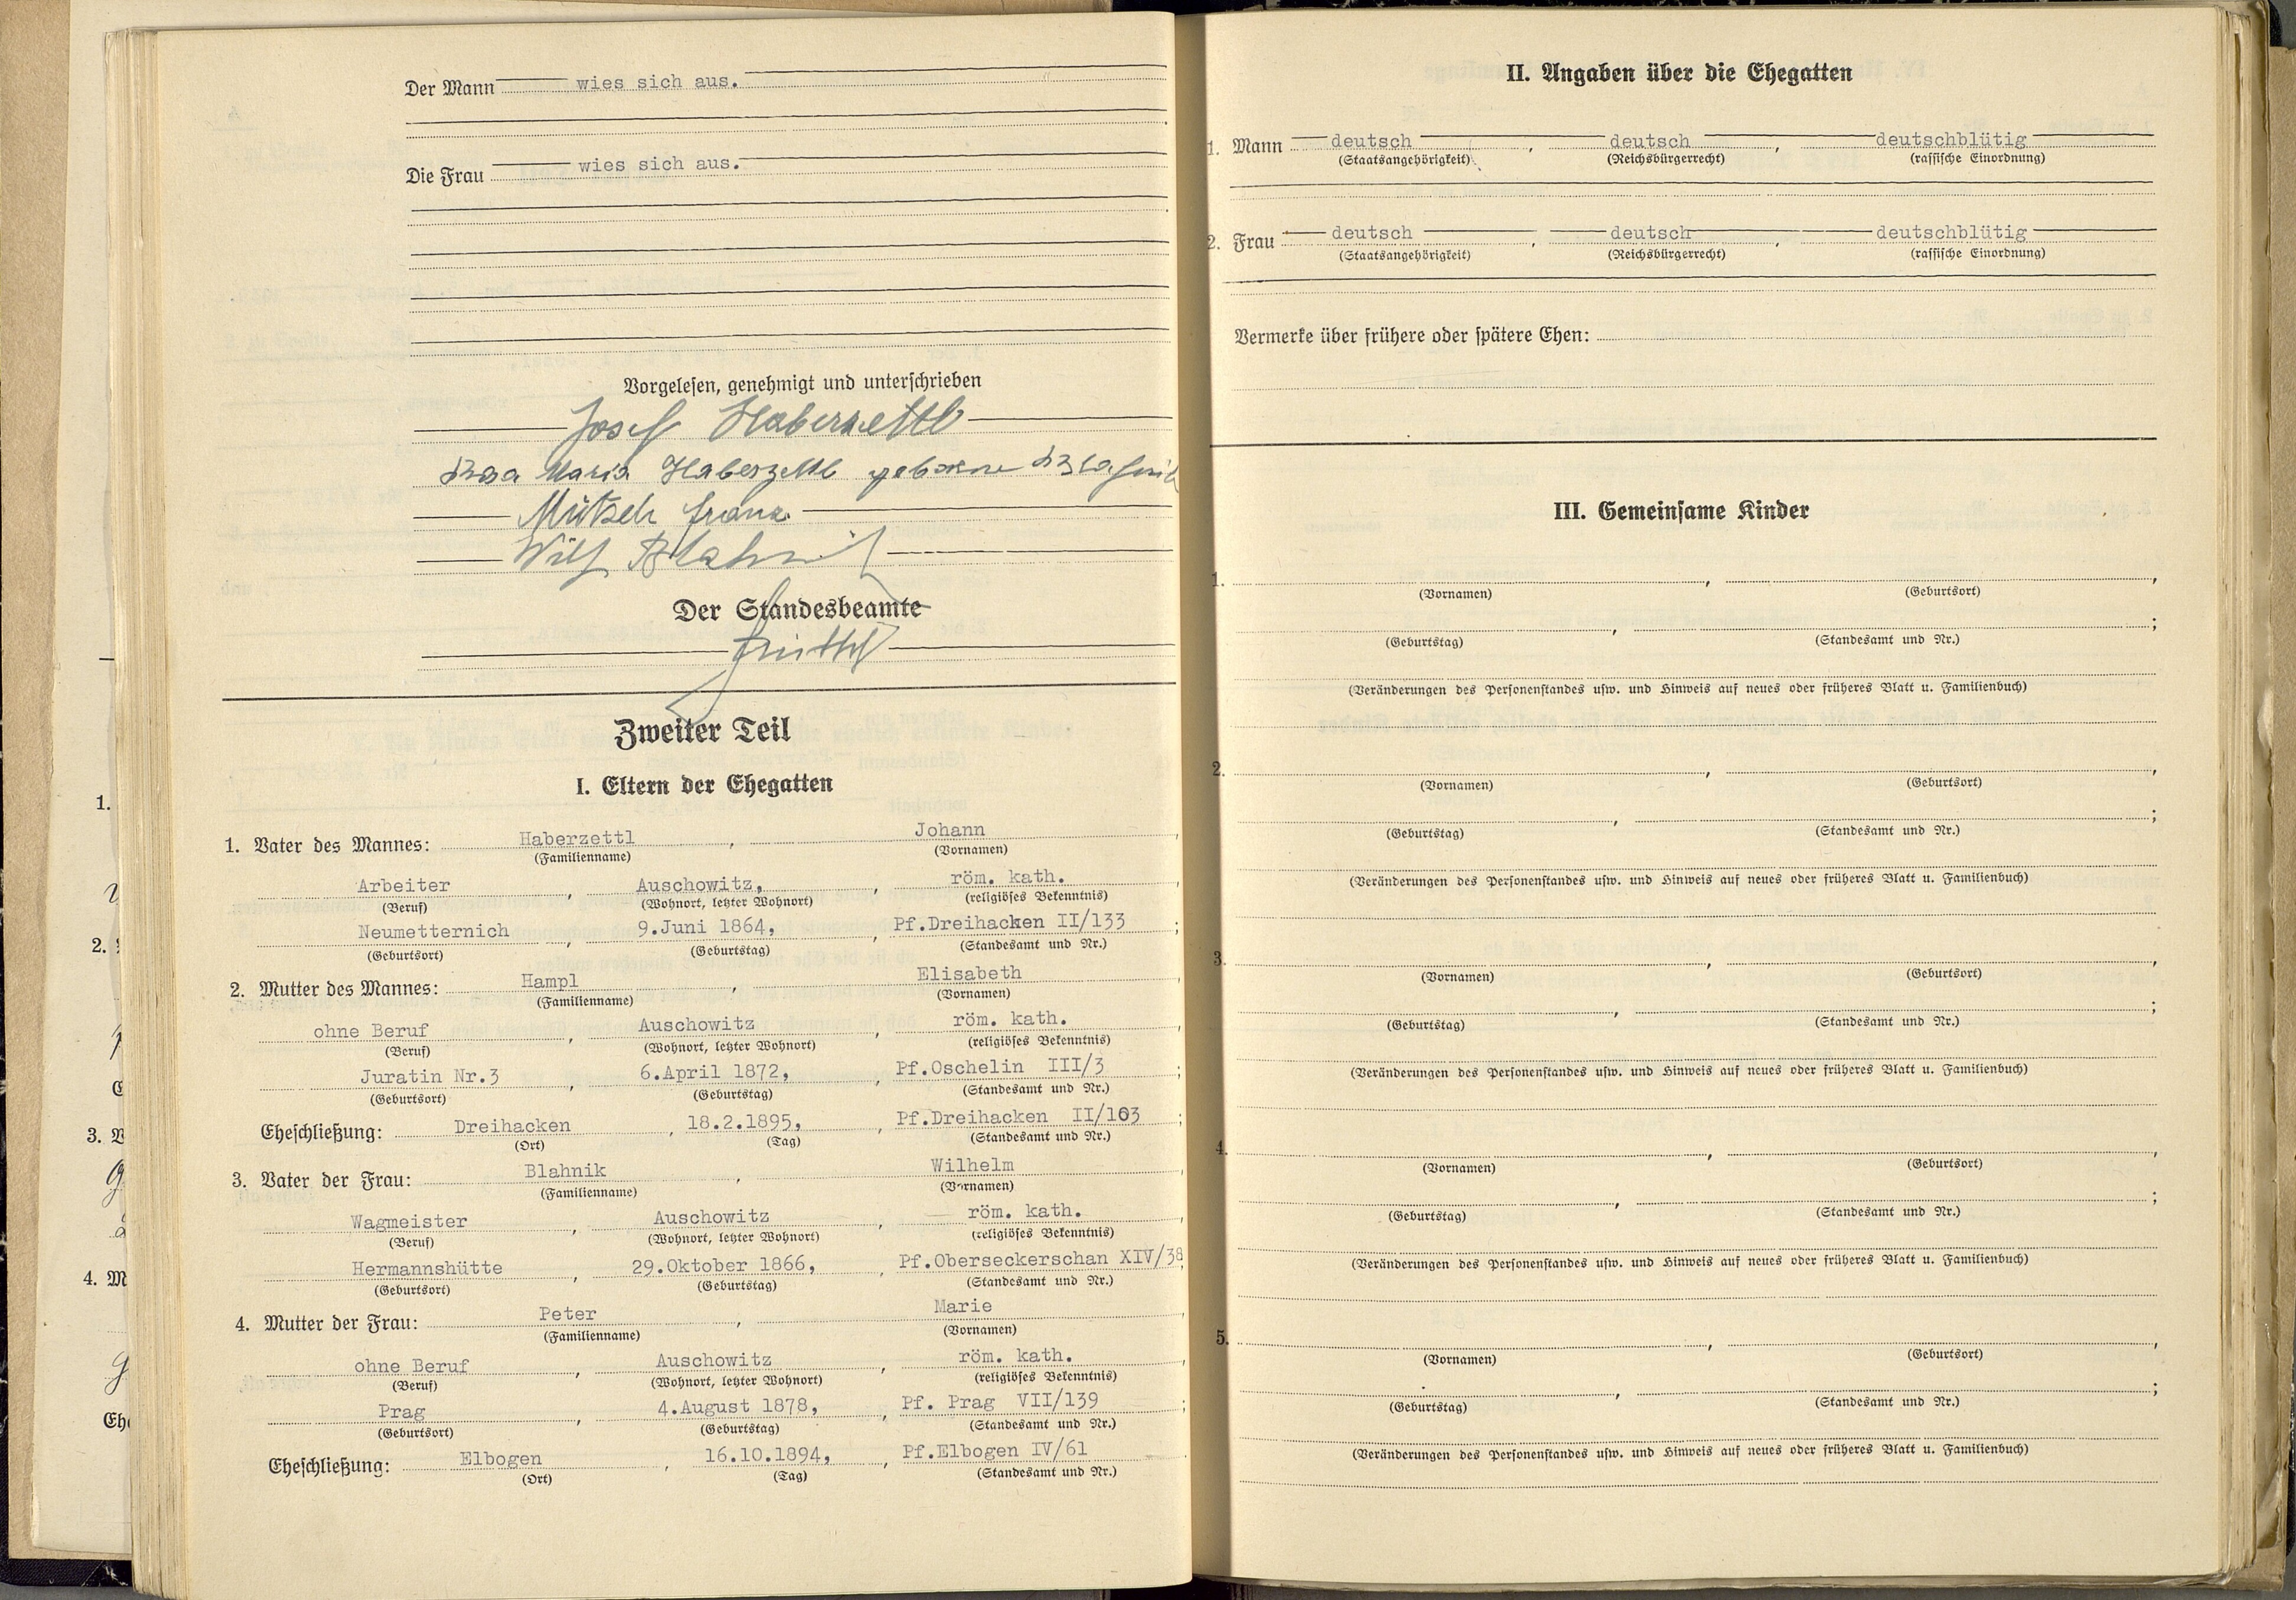 Der Mann wies sich aus.
Die Frau wies sich aus.
Vorgelesen, genehmigt und unterschrieben
Josef Haberzettl
Rosa Maria Haberzettl geborne Blahnik
Mütsch Franz
Wilh Blahnik
Der Standesbeamte
Zweiter Teil
I. Eltern der Ehegatten
1. Vater des Mannes: Haberzettl, Johann
(Familienname) (Vornamen)
Arbeiter, Auschowitz, röm. kath.
(Beruf) (Wohnort, letzter Wohnort) (religiöses Bekenntnis)
Neumetternich, 9.Juni 1864, Pf.Dreihacken II/133;
(Geburtsort) (Geburtstag) (Standesamt und Nr.)
2. Mutter des Mannes: Hampl, Elisabeth
(Familienname) (Vornamen)
ohne Beruf, Auschowitz, röm. kath.
(Beruf) (Wohnort, letzter Wohnort) (religiöses Bekenntnis)
Juratin Nr.3, 6.April 1872, Pf.Oschelin III/3;
(Geburtsort) (Geburtstag) (Standesamt und Nr.)
Eheschließung: Dreihacken, 18.2.1895, Pf.Dreihacken II/103;
(Ort) (Tag) (Standesamt und Nr.)
3. Vater der Frau: Blahnik, Wilhelm
(Familienname) (Vornamen)
Wagmeister, Auschowitz, röm. kath.
(Beruf) (Wohnort, letzter Wohnort) (religiöses Bekenntnis)
Hermannshütte, 29.Oktober 1866, Pf.Oberseckerschan XIV/38
(Geburtsort) (Geburtstag) (Standesamt und Nr.)
4. Mutter der Frau: Peter, Marie
(Familienname) (Vornamen)
ohne Beruf, Auschowitz, röm. kath.
(Beruf) (Wohnort, letzter Wohnort) (religiöses Bekenntnis)
Prag, 4.August 1878, Pf. Prag VII/139;
(Geburtsort) (Geburtstag) (Standesamt und Nr.)
Eheschließung: Elbogen, 16.10.1894, Pf.Elbogen IV/61
(Ort) (Tag) (Standesamt und Nr.)
II. Angaben über die Ehegatten
1. Mann deutsch, deutsch, deutschblütig
(Staatsangehörigkeit) (Reichsbürgerrecht) (rassische Einordnung)
2. Frau deutsch, deutsch, deutschblütig
(Staatsangehörigkeit) (Reichsbürgerrecht) (rassische Einordnung)
Vermerke über frühere oder spätere Ehen:
III. Gemeinsame Kinder
1. , ,
(Vornamen) (Geburtsort)
, ;
(Geburtstag) (Standesamt und Nr.)
(Veränderungen des Personenstandes usw. und Hinweis auf neues oder früheres Blatt u. Familienbuch)
2. , ,
(Vornamen) (Geburtsort)
, ;
(Geburtstag) (Standesamt und Nr.)
(Veränderungen des Personenstandes usw. und Hinweis auf neues oder früheres Blatt u. Familienbuch)
3. , ,
(Vornamen) (Geburtsort)
, ;
(Geburtstag) (Standesamt und Nr.)
(Veränderungen des Personenstandes usw. und Hinweis auf neues oder früheres Blatt u. Familienbuch)
4. , ,
(Vornamen) (Geburtsort)
, ;
(Geburtstag) (Standesamt und Nr.)
(Veränderungen des Personenstandes usw. und Hinweis auf neues oder früheres Blatt u. Familienbuch)
5. , ,
(Vornamen) (Geburtsort)
, ;
(Geburtstag) (Standesamt und Nr.)
(Veränderungen des Personenstandes usw. und Hinweis auf neues oder früheres Blatt u. Familienbuch)